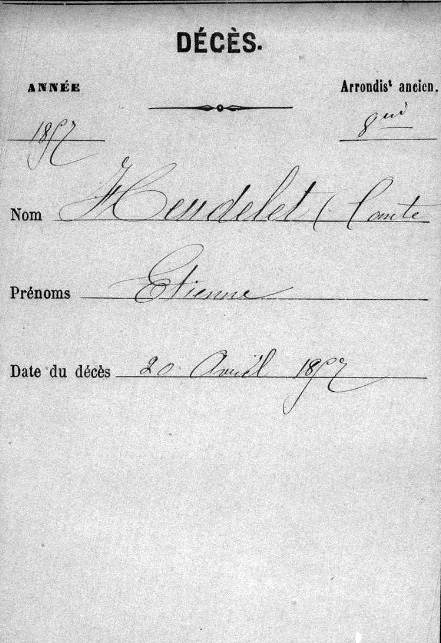 DÉCÈS.
ANNÉE
Arrondist ancien.
1857
8me
Nom Heudelet (Comte
Prénoms Etienne
Date du décès 20 Avril 1857